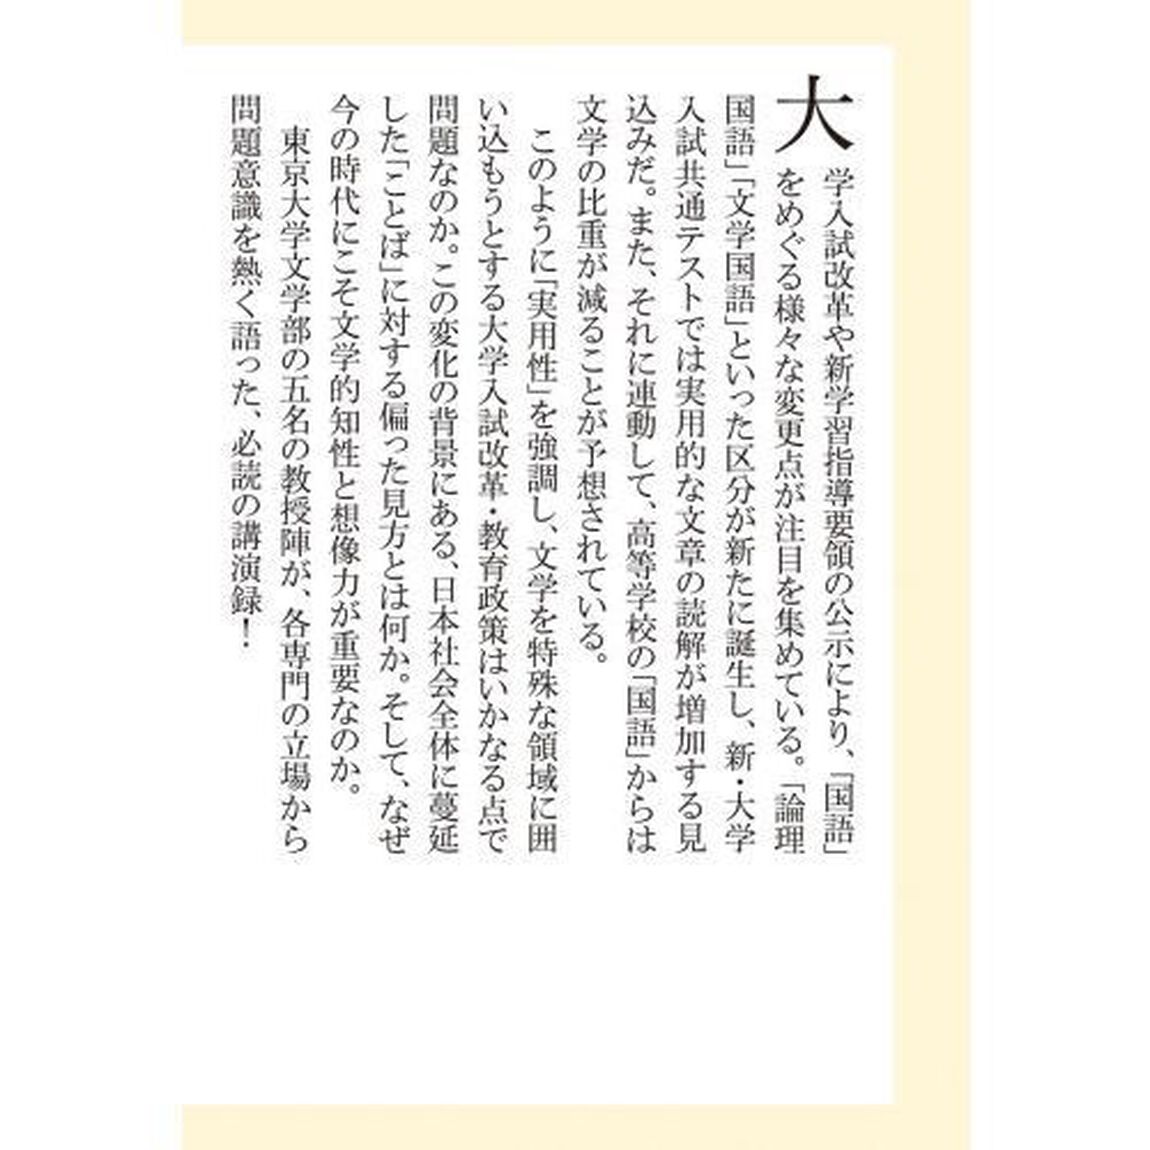 大学入試改革や新学習指導要領の公示により、「国語」
をめぐる様々な変更点が注目を集めている。「論理
国語」「文学国語」といった区分が新たに誕生し、新・大学
入試共通テストでは実用的な文章の読解が増加する見
込みだ。また、それに連動して、高等学校の「国語」からは
文学の比重が減ることが予想されている。
このように「実用性」を強調し、文学を特殊な領域に囲
い込もうとする大学入試改革・教育政策はいかなる点で
問題なのか。この変化の背景にある、日本社会全体に蔓延
した「ことば」に対する偏った見方とは何か。そして、なぜ
今の時代にこそ文学的知性と想像力が重要なのか。
東京大学文学部の五名の教授陣が、各専門の立場から
問題意識を熱く語った、必読の講演録！